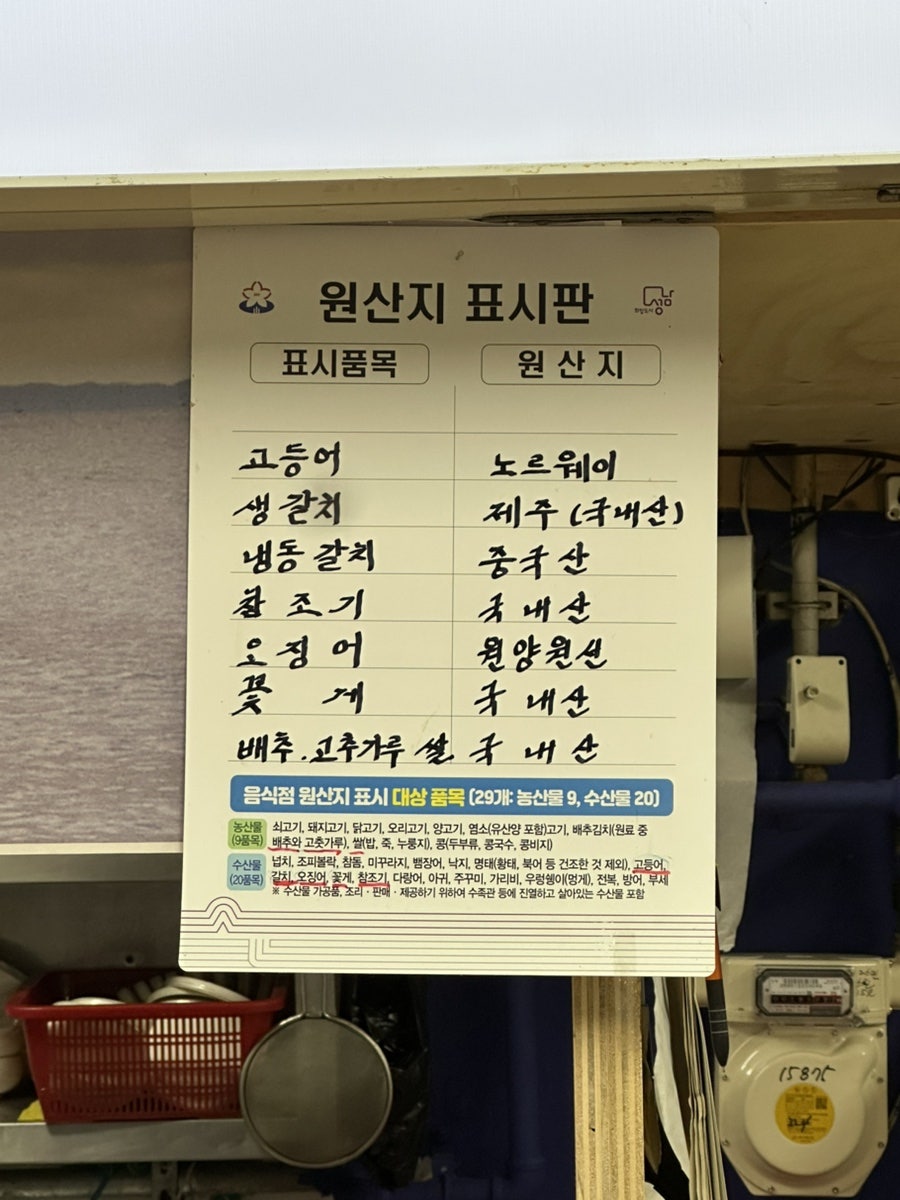 원산지 표시판
성남
표시품목 원산지
고등어 노르웨이
생갈치 제주(국내산)
냉동갈치 중국산
참조기 국내산
오징어 원양원산
꽃게 국내산
배추.고추가루 쌀 국내산
음식점 원산지 표시 대상 품목 (29개: 농산물 9, 수산물 20)
농산물 (9품목) 쇠고기, 돼지고기, 닭고기, 오리고기, 양고기, 염소(유산양 포함)고기, 배추김치(원료 중
배추와 고춧가루), 쌀(밥, 죽, 누룽지), 콩(두부류, 콩국수, 콩비지)
수산물 (20품목) 넙치, 조피볼락, 참돔, 미꾸라지, 뱀장어, 낙지, 명태(황태, 북어 등 건조한 것 제외), 고등어,
갈치, 오징어, 꽃게, 참조기, 다랑어, 아귀, 주꾸미, 가리비, 우렁쉥이(멍게), 전복, 방어, 부세
※ 수산물 가공품, 조리·판매·제공하기 위하여 수족관 등에 진열하고 살아있는 수산물 포함
15875